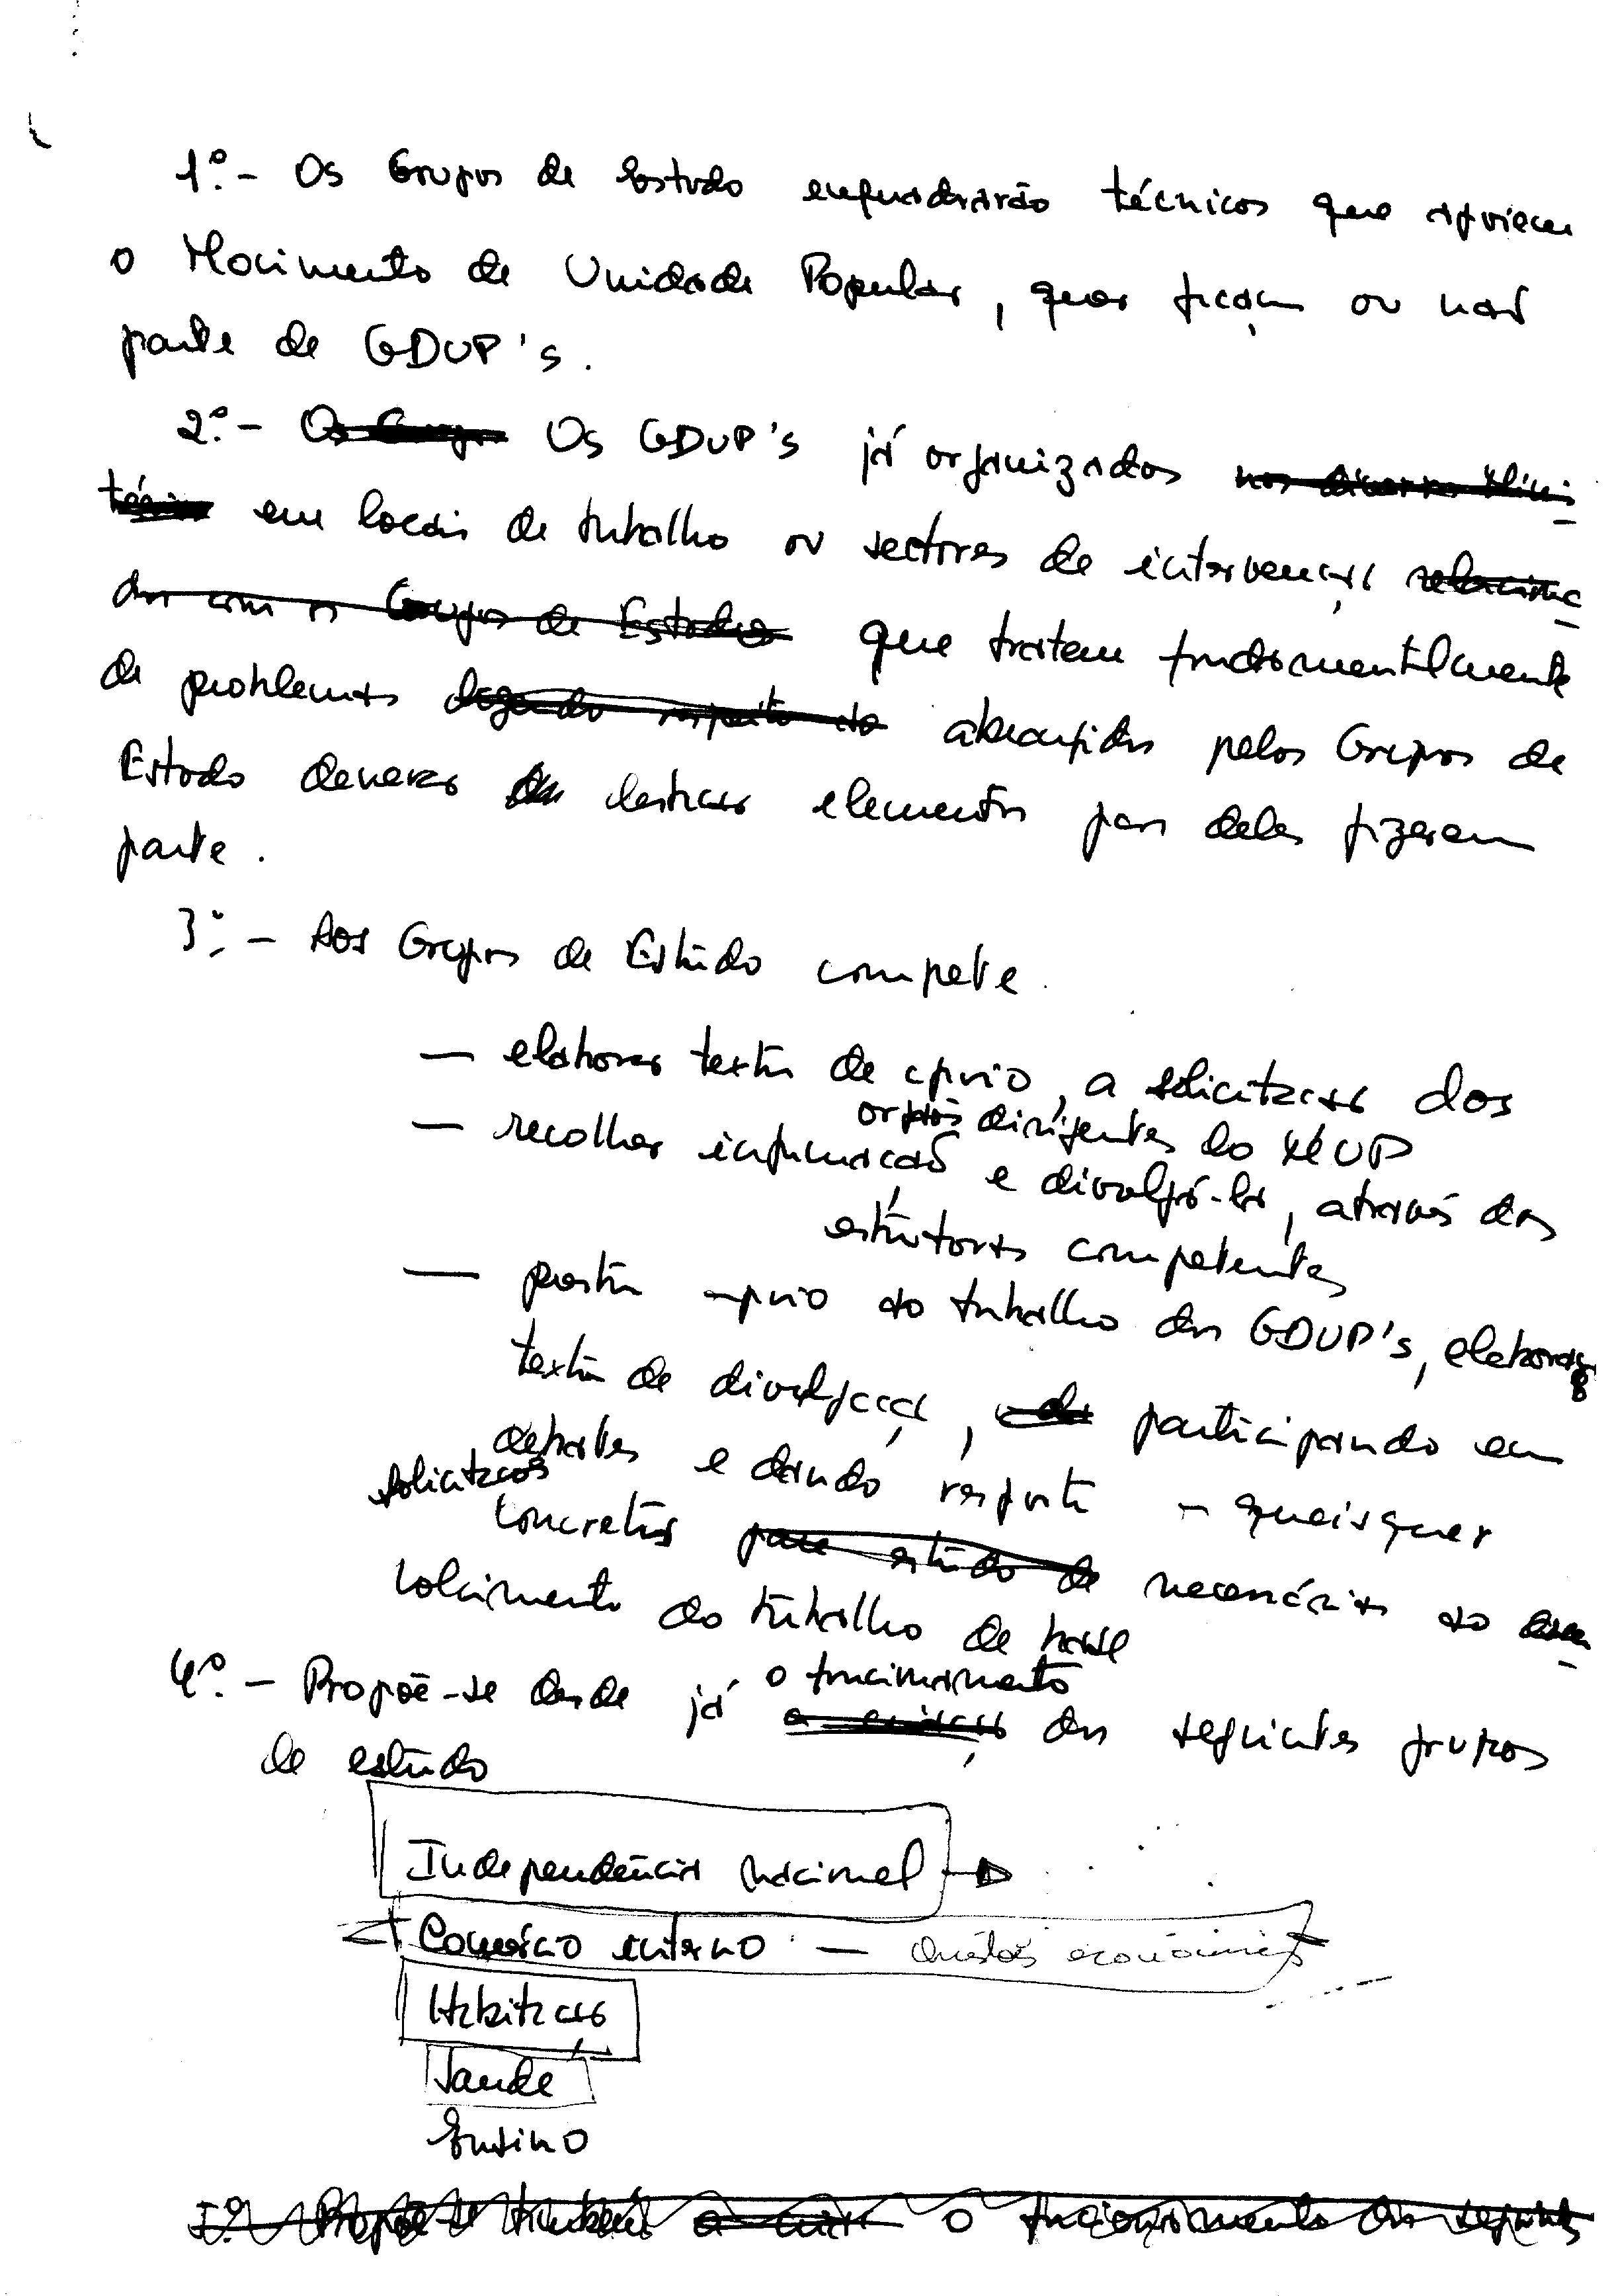 1.º - Os Grupos de Estudo enquadrarão técnicos que apoiem
o Movimento de Unidade Popular, quer façam ou não
parte de GDUP's.
2.º - Os Grupos Os GDUP's já organizados nos diversos
em locais de trabalho ou sectores de intervenção relaciona
dos com os Grupos de Estudos que tratem fundamentalmente
de problemas dizendo respeito ao abrangidos pelos Grupos de
Estudo deverão destacar elementos para deles fizerem
parte.
3.º - Aos Grupos de Estudo compete
— elaborar textos de apoio, a solicitação dos
orgãos dirigentes do MUP
— recolher informação e divulgá-la, através das
estruturas competentes
— prestar apoio ao trabalho dos GDUP's, elaborando
textos de divulgação, participando em
debates e dando resposta a quaisquer
solicitações
concretas para estudo de necessárias ao desen
volvimento do trabalho de base
4.º - Propõe-se desde já o funcionamento
a criação dos seguintes grupos
de estudo
Independência nacional
Comércio interno — Questões económicas
Habitação
Saúde
Ensino
5.º Propõe-se também a criar o funcionamento dos seguintes